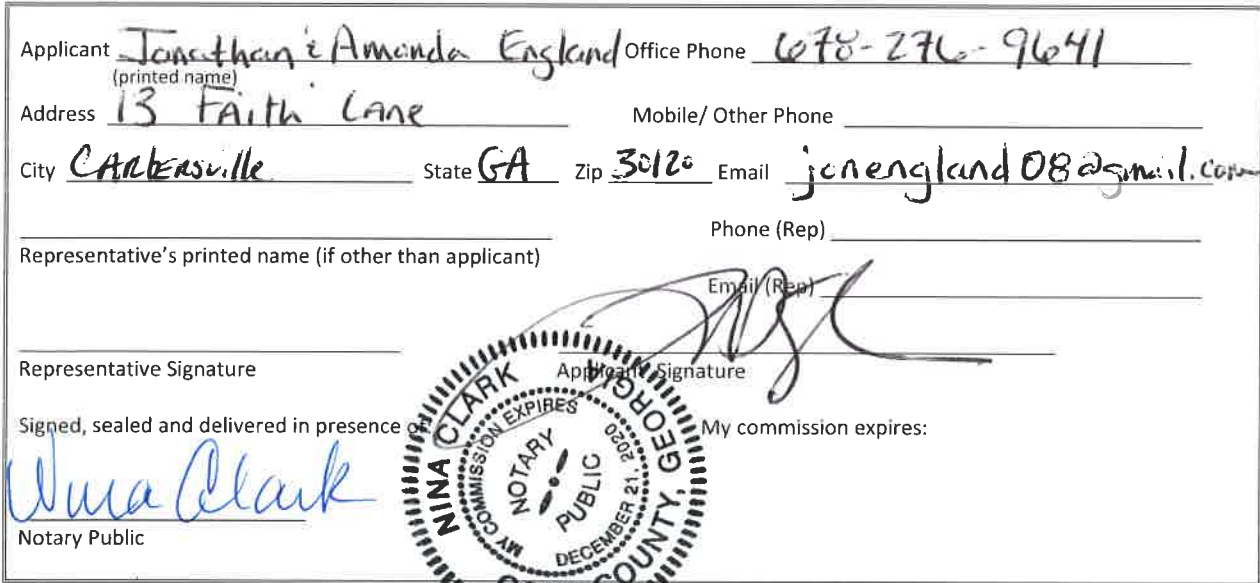 Applicant Jonathan & Amanda England Office Phone 678-276-9641
(printed name)
Address 13 Faith Lane Mobile/ Other Phone
City CARtERSville State GA Zip 30120 Email jonengland08@gmail.com
Phone (Rep)
Representative's printed name (if other than applicant)
Email (Rep)
Representative Signature Applicant Signature
Signed, sealed and delivered in presence of: My commission expires:
Nina Clark
Notary Public
NINA CLARK
COUNTY, GEORGIA
MY COMMISSION EXPIRES
DECEMBER 21, 2020
NOTARY
PUBLIC